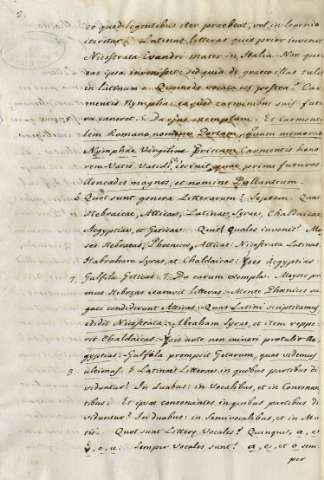 eo quod legentibus iter praebeat, vel in legendo
iteretur. Latinas litteras quis prior invenit?
Nicostrata Evandri mater in Italia. Non quod
eas ipsa invenisset, sed quia de graecis eas tulit
in latinum. Quomodo vocata est postea? Car-
mentis Nympha, eo quod carminibus suis futu-
ra caneret. Da ejus exemplum. Et Carmenta-
lem Romano nomine Portam, quam memorant
Nymphae Virgilius Priscam Carmentis hono-
rem Vatis cecinit quae prima futuros
Aeneadas magnos, et nomine Pallanteum.
6 Quot sunt genera Litterarum? Septem. Quae
Hebraicae, Atticae, Latinae, Syrae, Chaldaicae
Aegyptiae, et Geticae. Quis quales invenit? Moy-
ses Hebraeas, Phenices Atticas, Nicostrata Latinas
Habraham Syras, et Chaldaicas, Isis Aegyptias
Gulfila Geticas. 7. Da earum exempla. Moyses pri-
mus Hebraeas exaravit litteras. Mente Phenices sa-
gaci condiderunt Atticas. Quas Latini scriptitamus
edidit Nicostrata. Abraham Syras, et idem reppe-
rit Chaldaicas. Isis arte non minori protulit Ae-
gyptias. Gulfila prompsit Getarum, quas videmus
ultimas. 8 Latinae Litterae in quibus partibus di-
viduntur? In duabus: in Vocalibus, et in Consonan-
tibus. Et ipsae consonantes in quibus partibus di-
viduntur? In duabus: in Semivocalibus, et in Mu-
tis. Quot sunt Litterae Vocales? Quinque, a, e
i, o, u. Semper Vocales sunt? a, e, et o sem-
per